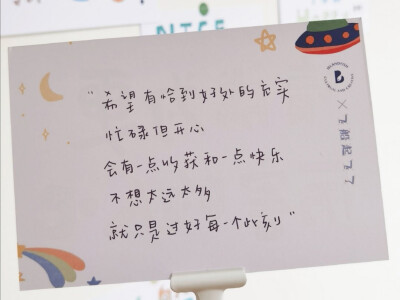 NICE
"希望有恰到好处的充实
忙碌但开心
会有一点收获和一点快乐
不想太远太多
就只是过好每一个此刻"
B